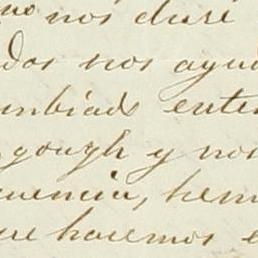 no nos dusé
dos nos ayud
mbiads enter
gough y nos
uencia, hem
ue hacemos e